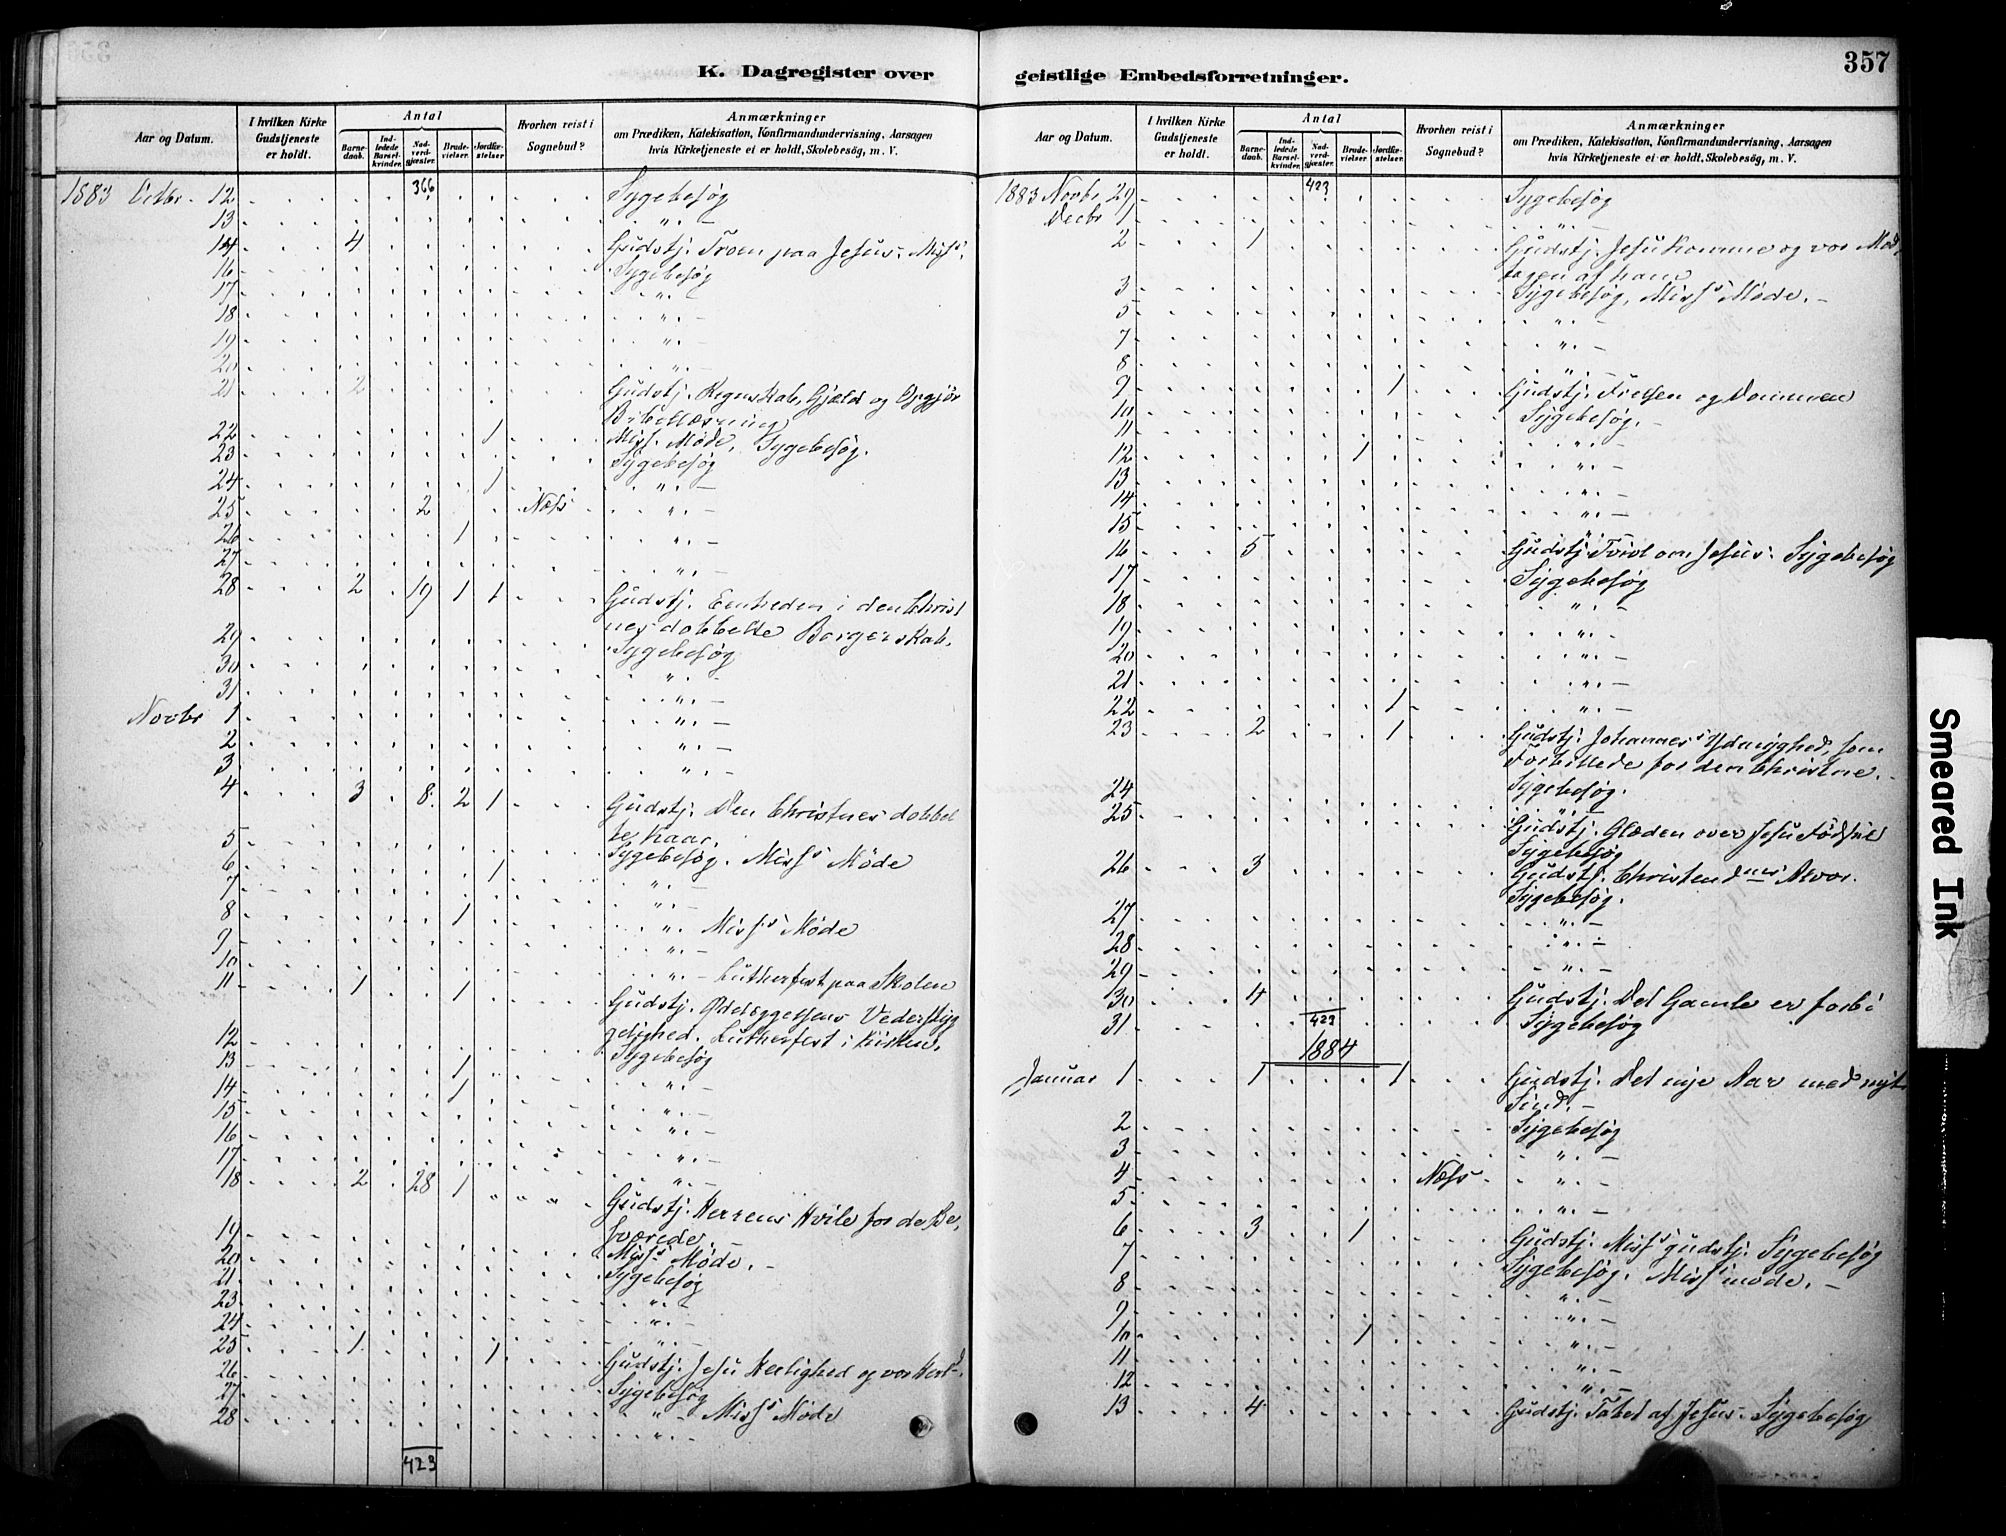 357
K. Dagregister over
Aar og Datum.
I hvilken Kirke Gudstjeneste er holdt.
Antal
Barnedaab.
Indledede Barselkvinder.
Nadverdgjæster.
Brudevielser.
Jordfæstelser
Hvorhen reist i Sognebud?
Anmærkninger
om Prædiken, Katekisation, Konfirmandundervisning, Aarsagen
hvis Kirketjeneste ei er holdt, Skolebesøg, m. V.
1883 Octbr. 12 366 Sygebesøg
13 " . —
14 4 Gudstj. Troen paa Jesus. Miss.
16 Sygebesøg
17 " . —
18 " . —
19 " . —
20 " . —
21 2 Gudstj. Regnskab, Gjæld og Opgjør
Bibellæsning
22 1 Miss. Møde. Sygebesøg.
23 Sygebesøg
24 1 " . —
25 2 Næss " . —
26 1 " . —
27 " . —
28 2 19 1 1 Gudstj. Eenheden i den Christ
nes dobbelte Borgerskab.
29 Sygebesøg
30 " . —
31 " . —
Novbr 1 " . —
2 " . —
3 " . —
4 3 8 2 1 Gudstj. Den Christnes dobbel
te Kaar.
5 Sygebesøg. Miss Møde
6 1 " . —
7 " . —
8 1 " . Miss Møde
9 " . —
10 " . — Lutherfest paa Skolen
11 1 1 Gudstj. Ødelæggelsens Vederstyg
gelighed. Lutherfest i Kirken.
12 Sygebesøg
13 1 " . —
14 1 " . —
15 " . —
16 " . —
17 " . —
18 2 28 1 Gudstj. Herrens Hvile for de Be,
sværede. —
19 Miss Møde. —
20 Sygebesøg
21 " . —
23 " . —
24 " . —
25 1 1 Gudstj. Jesu Herlighed og vor Herl.
26 Sygebesøg
27 " — Miss Møde
28 " . —
423
geistlige Embedsforretninger.
Aar og Datum.
I hvilken Kirke Gudstjeneste er holdt.
Antal
Barnedaab.
Indledede Barselkvinder.
Nadverdgjæster.
Brudevielser.
Jordfæstelser.
Hvorhen reist i Sognebud?
Anmærkninger
om Prædiken, Katekisation, Konfirmandundervisning, Aarsagen
hvis Kirketjeneste ei er holdt, Skolebesøg, m. V.
1883 Novbr. 29 423 Sygebesøg
Decbr 1 " . —
2 1 Gudstj. Jesu Komme og vor Mod,
tagen af ham
3 Sygebesøg, Miss Møde. —
5 " . —
7 " . —
8 " . —
9 1 Gudstj. Frelsen og Dommen
10 Sygebesøg. —
11 " . —
12 1 " . —
13 " . —
14 " . —
15 " . —
16 5 Gudstj. Tvivl om Jesus. Sygebesøg
17 Sygebesøg
18 " . —
19 " . —
20 " . —
21 " . —
22 1 " . —
23 2 1 Gudstj. Johannes's Ydmyghed, som
Forbillede for den Christne. —
24 Sygebesøg.
25 Gudstj. Glæden over Jesu Fødsel
Sygebesøg
26 3 Gudstj. Christend mes Alvor.
Sygebesøg.
27 " . —
28 " . —
29 " . —
30 4 Gudstj. Det Gamle er forbi
31 423 Sygebesøg
1884
Januar 1 1 1 Gudstj. Det nye Aar med nyt
Sind. —
2 Sygebesøg
3 " . —
4 Næss " . —
5 " . —
6 3 1 Gudstj. Miss gudstj. Sygebesøg
7 Sygebesøg. Miss møde. —
8 " . —
9 " . —
10 1 " . —
11 " . —
12 " . —
13 4 Gudstj. Tabet af Jesus. Sygebesøg
Smeared Ink